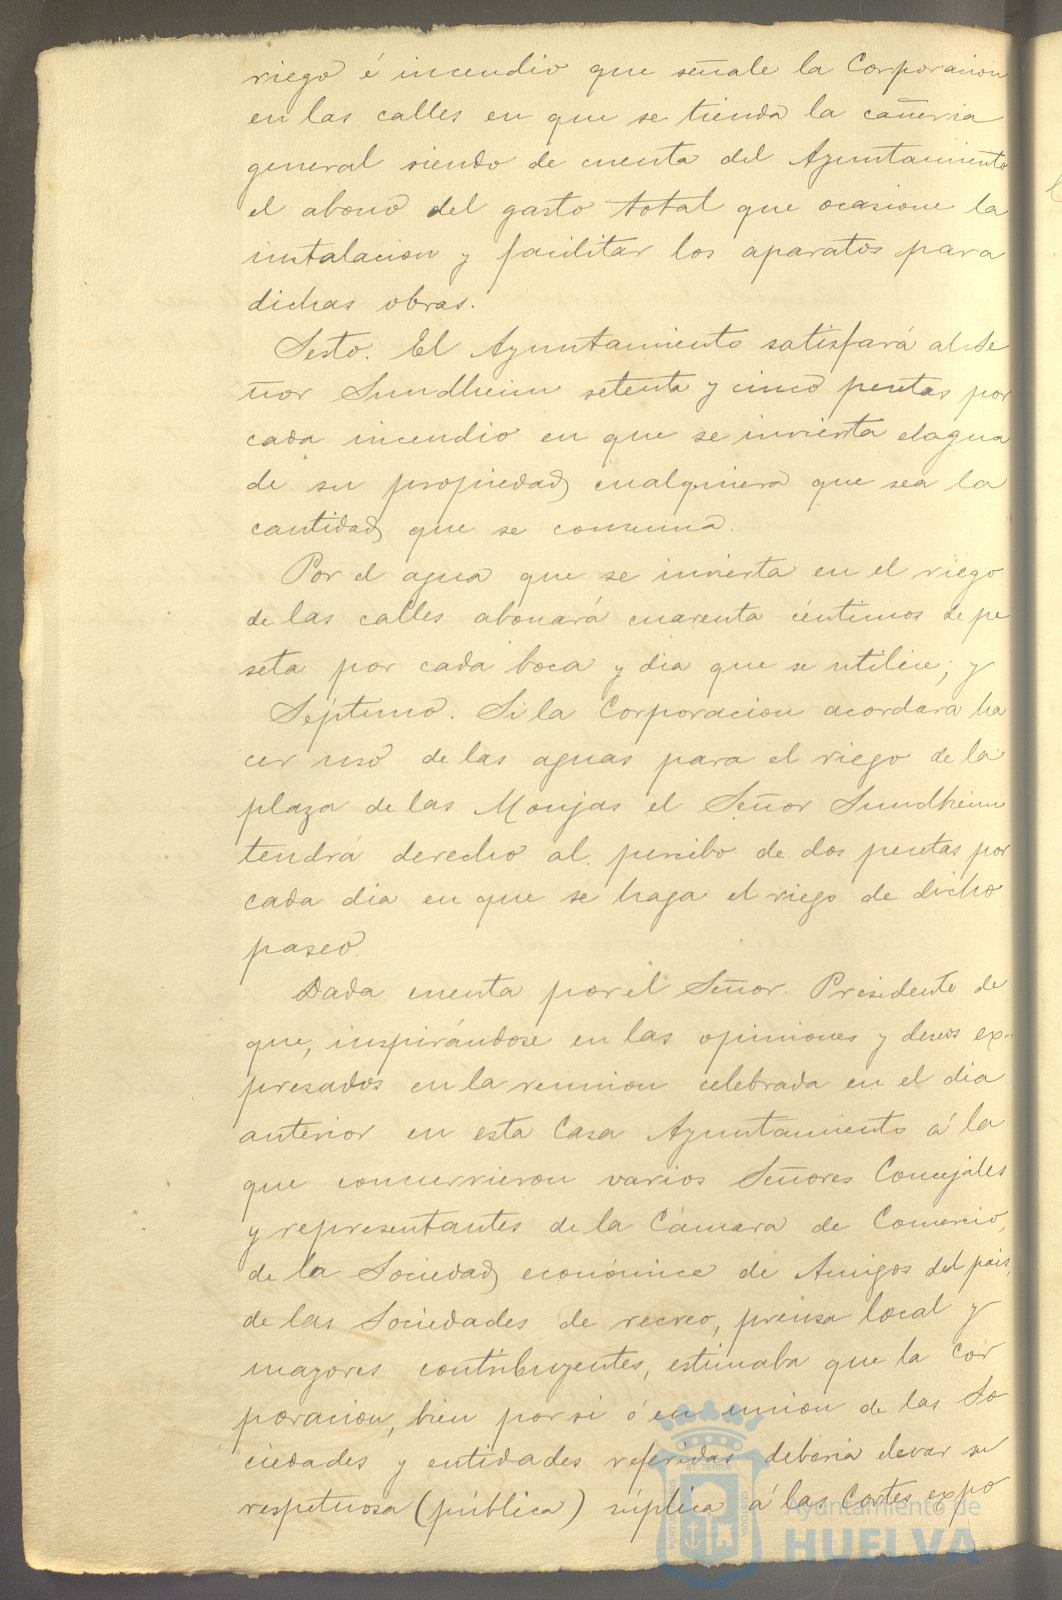 riego é incendio que señale la Corporacion
en las calles en que se tienda la cañeria
general siendo de cuenta del Ayuntamiento
el abono del gasto total que ocasione la
instalacion y facilitar los aparatos para
dichas obras.
Sesto. El Ayuntamiento satisfará al Se
ñor Sundheim setenta y cinco pesetas por
cada incendio en que se invierta el agua
de su propiedad, cualquiera que sea la
cantidad que se consuma.
Por el agua que se invierta en el riego
de las calles abonará cuarenta céntimos de pe
seta por cada boca y dia que se utilice; y
Séptimo. Si la Corporacion acordara ha
cer uso de las aguas para el riego de la
plaza de las Monjas el Señor Sundheim
tendrá derecho al percibo de dos pesetas por
cada dia en que se haga el riego de dicho
paseo.
Dada cuenta por el Señor Presidente de
que, inspirándose en las opiniones y deseos ex-
presados en la reunion celebrada en el dia
anterior en esta Casa Ayuntamiento á la
que concurrieron varios Señores Concejales
y representantes de la Cámara de Comercio,
de la Sociedad económica de Amigos del pais,
de las Sociedades de recreo, prensa local y
mayores contribuyentes, estimaba que la Cor
poracion, bien por si ó en union de las So
ciedades y entidades referidas deberia elevar su
respetuosa (pública) súplica á las Cortes expo
Ayuntamiento de
HUELVA